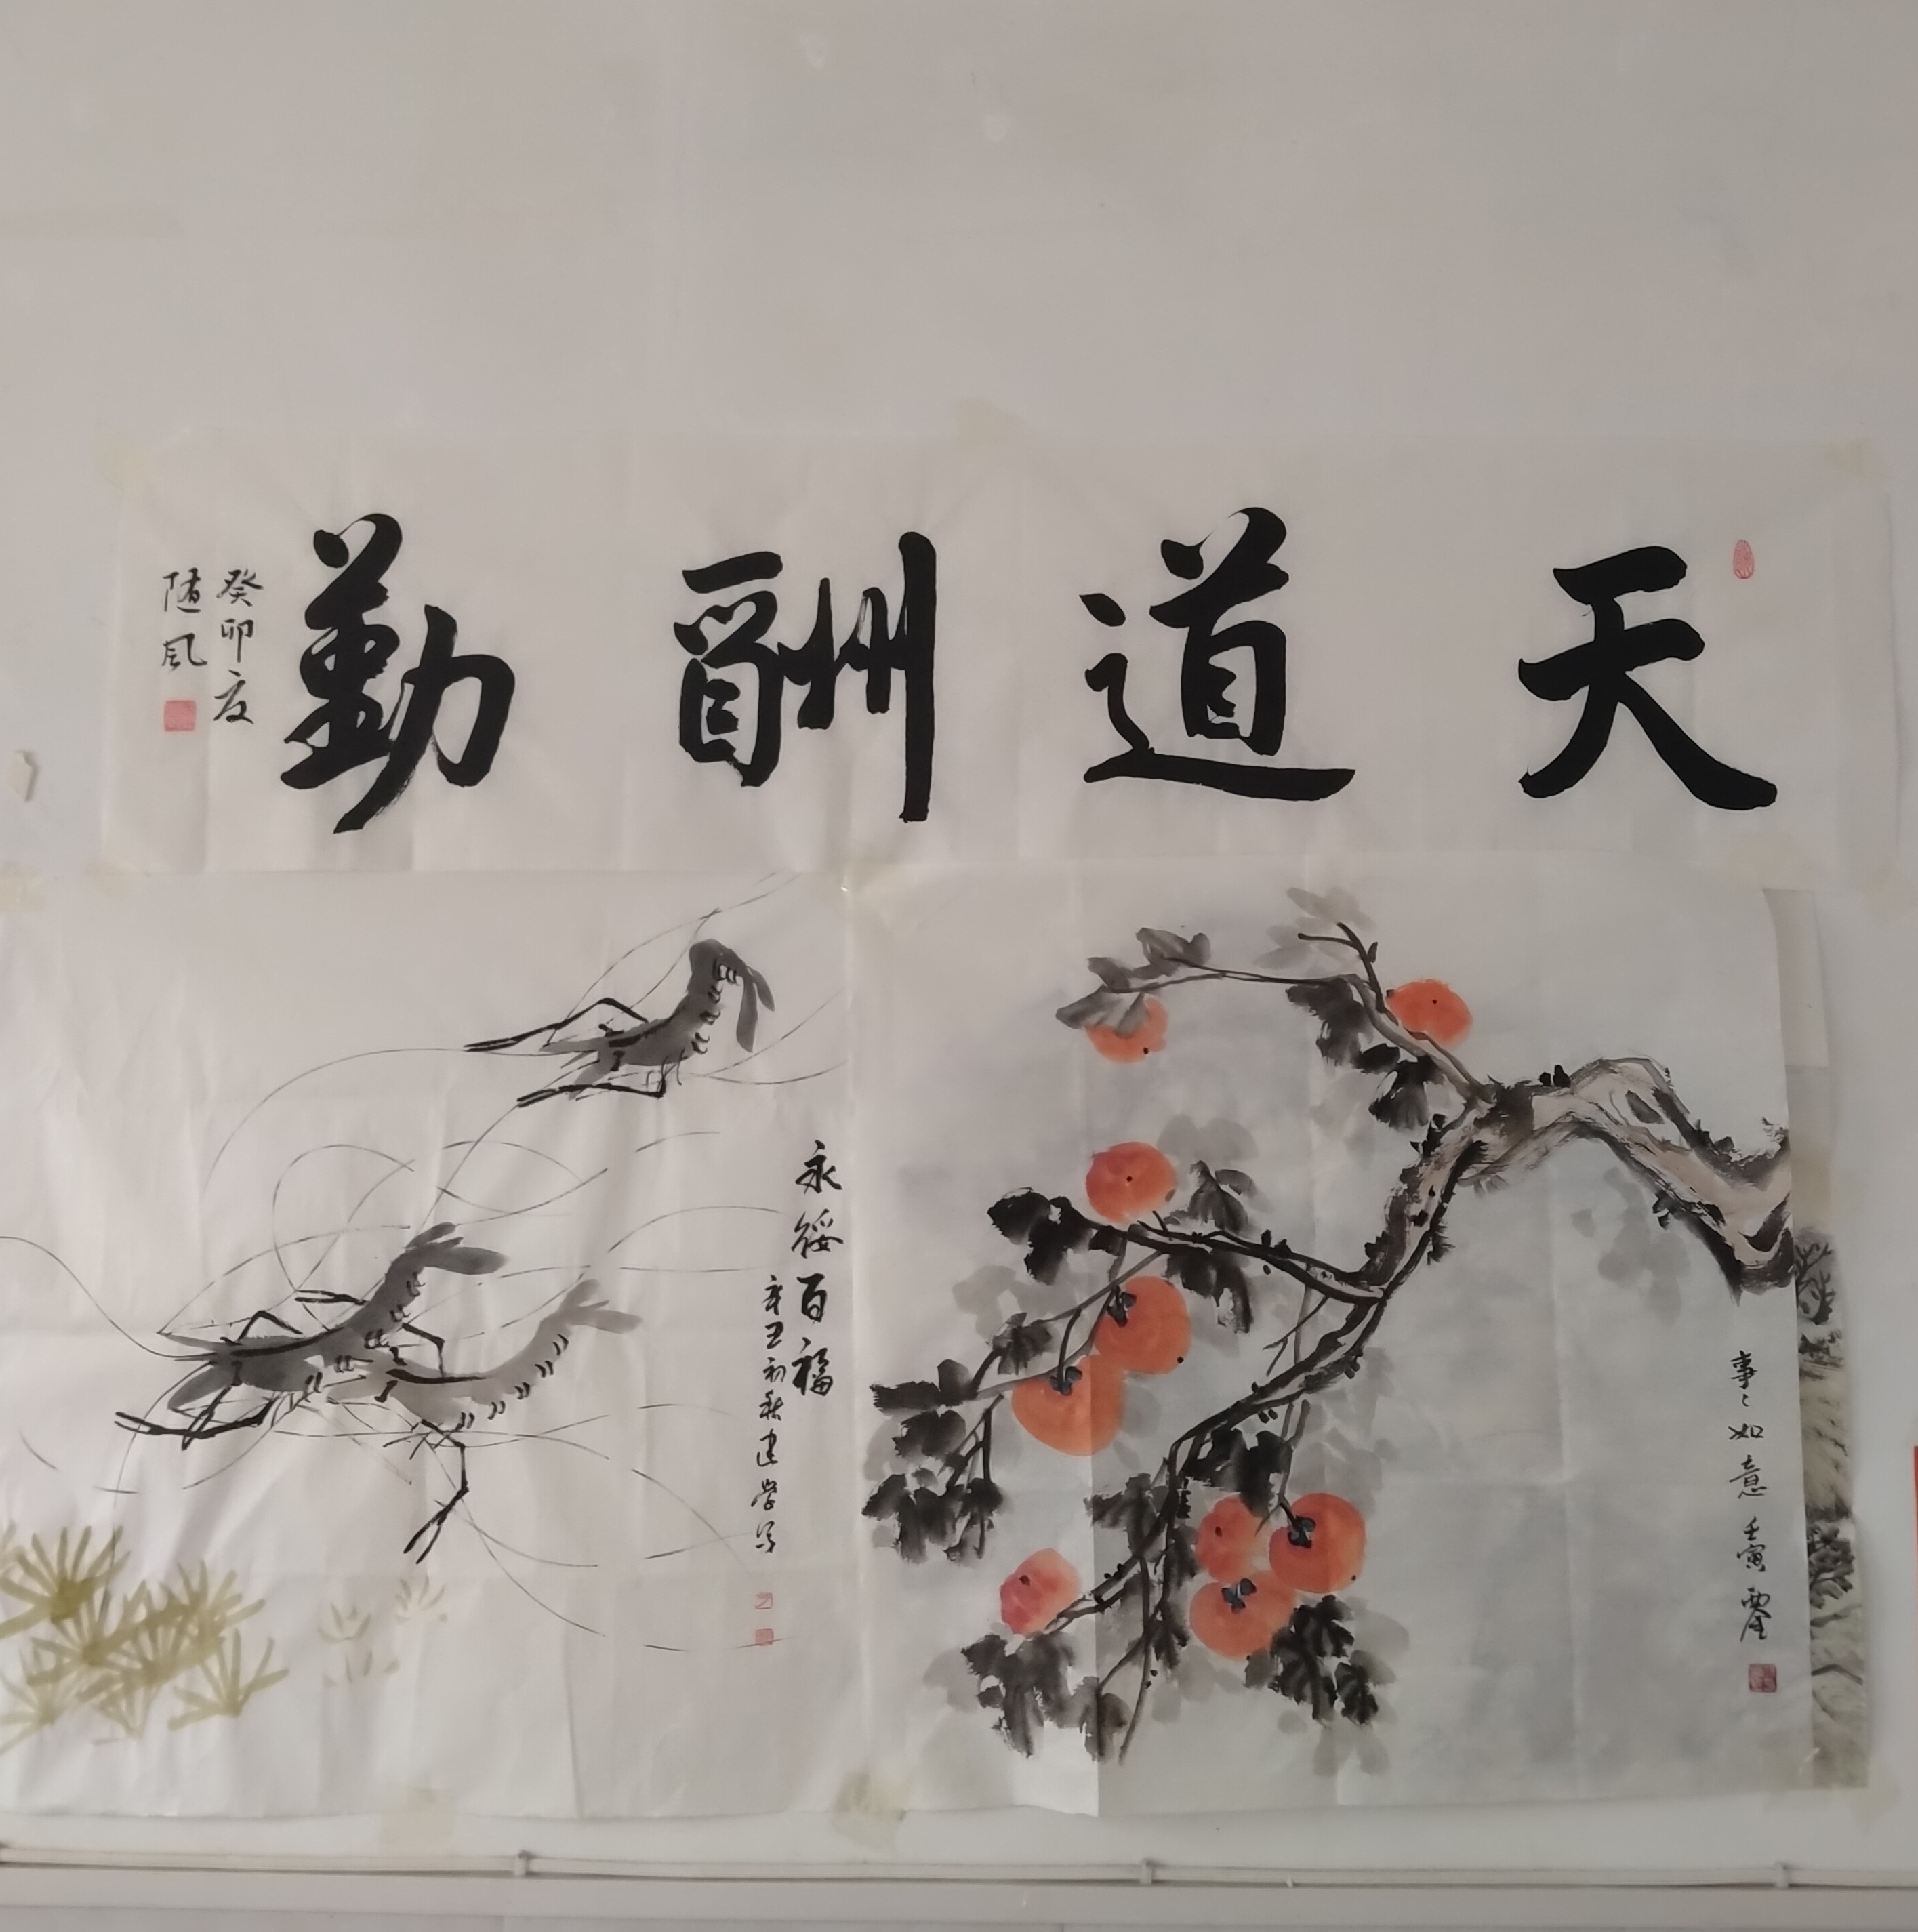 天道酬勤
癸卯夏
随风
永绥百福
辛丑初秋建学写
事〻如意 壬寅